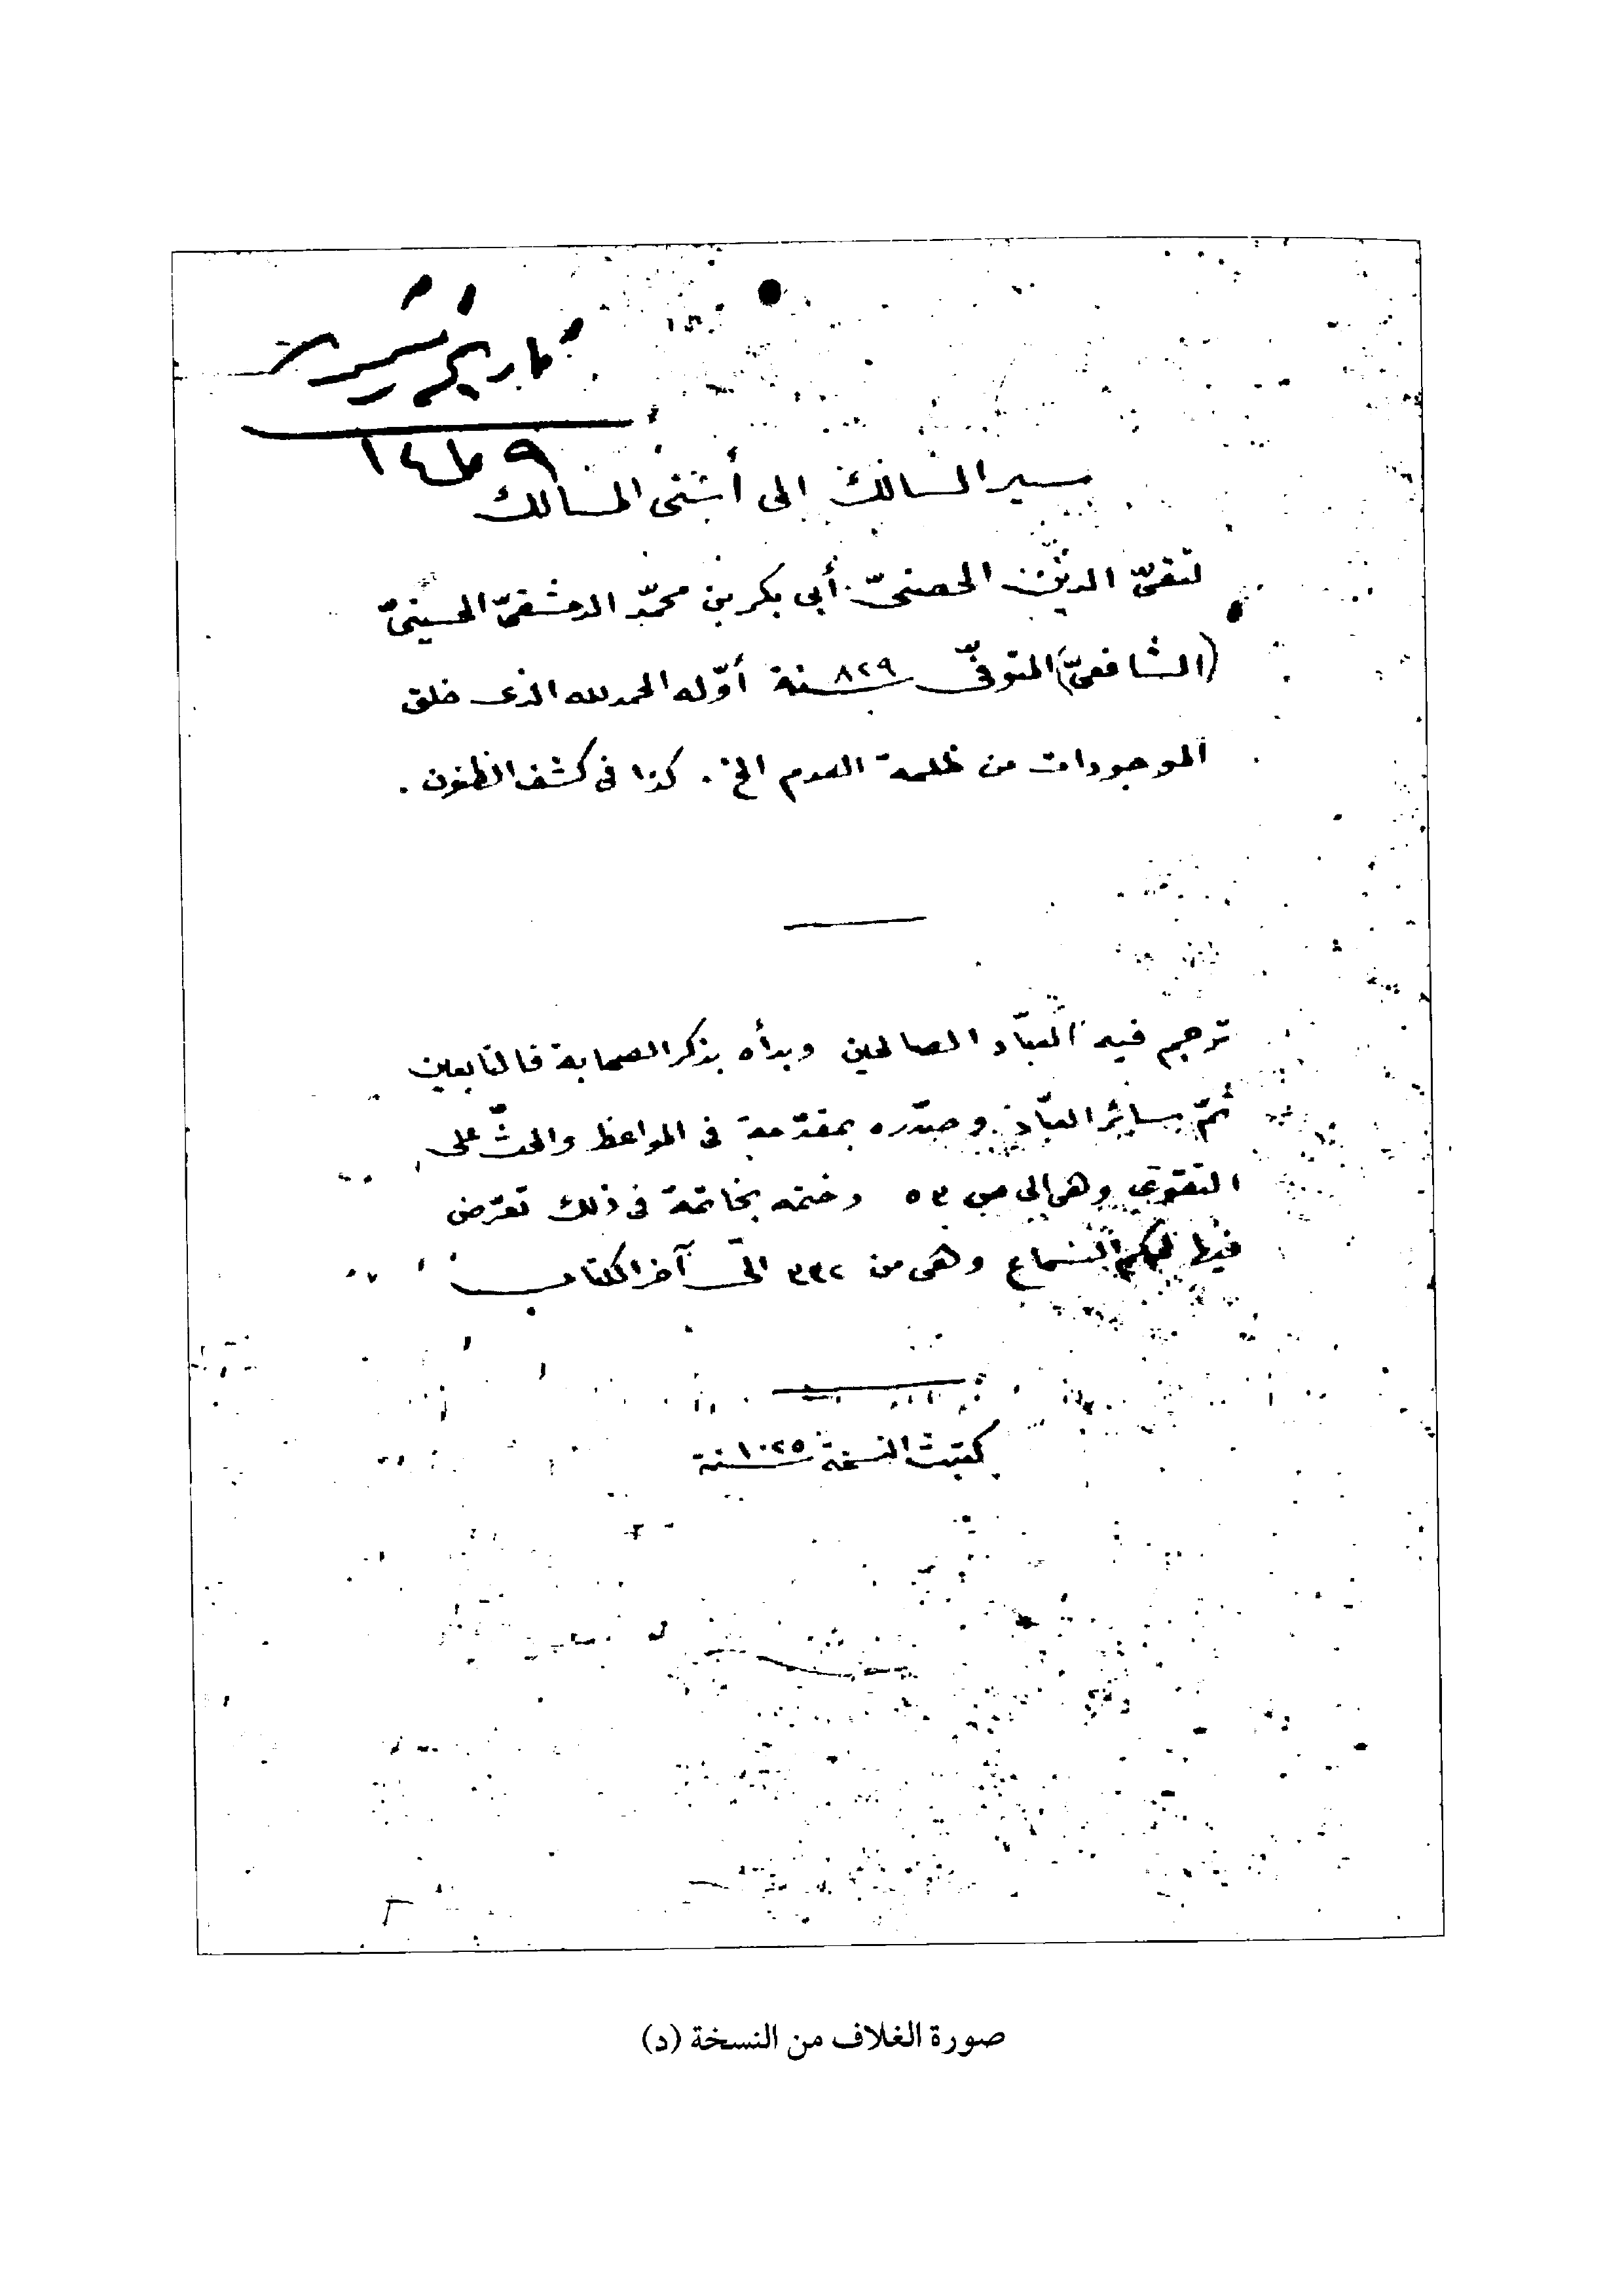 تاريخ تيمور
١٤٠٩
سير السالك إلى أسنى المسالك
لتقيّ الدين الحصنيّ أبي بكر بن محمّد الدمشقيّ الحسينيّ
(الشافعيّ) المتوفّى سنة ٨٢٩ أوّله الحمد لله الذى خلق
الموجودات من ظلمة العدم الخ . كذا فى كشف الظنون .
ترجم فيه العبّاد الصالحين وبدأه بذكر الصحابة فالتابعين
ثمّ بسائر العبّاد وصدّره بمقدّمة فى المواعظ والحثّ على
التقوى وهى إلى ص ٥٣ وختمه بخاتمة فى ذلك تعرّض
فيها لحكم السماع وهى من ٣٣٢ الى آخر الكتاب
كتبت النسخة سنة ١٠٢٥
صورة الغلاف من النسخة (د)